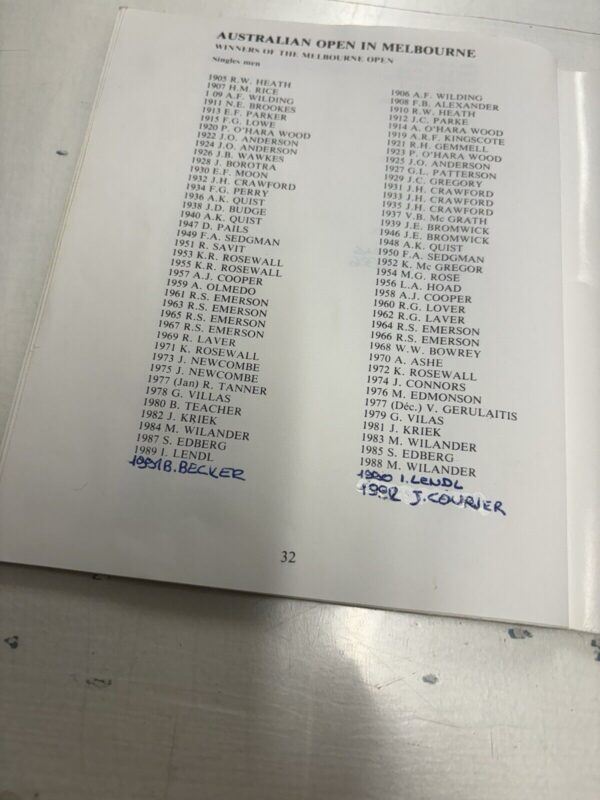 AUSTRALIAN OPEN IN MELBOURNE
WINNERS OF THE MELBOURNE OPEN
Singles men
1905 R.W. HEATH
1907 H.M. RICE
1 09 A.F. WILDING
1911 N.E. BROOKES
1913 E.F. PARKER
1915 F.G. LOWE
1920 P. O'HARA WOOD
1922 J.O. ANDERSON
1924 J.O. ANDERSON
1926 J.B. WAWKES
1928 J. BOROTRA
1930 E.F. MOON
1932 J.H. CRAWFORD
1934 F.G. PERRY
1936 A.K. QUIST
1938 J.D. BUDGE
1940 A.K. QUIST
1947 D. PAILS
1949 F.A. SEDGMAN
1951 R. SAVIT
1953 K.R. ROSEWALL
1955 K.R. ROSEWALL
1957 A.J. COOPER
1959 A. OLMEDO
1961 R.S. EMERSON
1963 R.S. EMERSON
1965 R.S. EMERSON
1967 R.S. EMERSON
1969 R. LAVER
1971 K. ROSEWALL
1973 J. NEWCOMBE
1975 J. NEWCOMBE
1977 (Jan) R. TANNER
1978 G. VILLAS
1980 B. TEACHER
1982 J. KRIEK
1984 M. WILANDER
1987 S. EDBERG
1989 I. LENDL
1991 B. BECKER
1906 A.F. WILDING
1908 F.B. ALEXANDER
1910 R.W. HEATH
1912 J.C. PARKE
1914 A. O'HARA WOOD
1919 A.R.F. KINGSCOTE
1921 R.H. GEMMELL
1923 P. O'HARA WOOD
1925 J.O. ANDERSON
1927 G.L. PATTERSON
1929 J.C. GREGORY
1931 J.H. CRAWFORD
1933 J.H. CRAWFORD
1935 J.H. CRAWFORD
1937 V.B. Mc GRATH
1939 J.E. BROMWICK
1946 J.E. BROMWICK
1948 A.K. QUIST
1950 F.A. SEDGMAN
1952 K. Mc GREGOR
1954 M.G. ROSE
1956 L.A. HOAD
1958 A.J. COOPER
1960 R.G. LOVER
1962 R.G. LAVER
1964 R.S. EMERSON
1966 R.S. EMERSON
1968 W.W. BOWREY
1970 A. ASHE
1972 K. ROSEWALL
1974 J. CONNORS
1976 M. EDMONSON
1977 (Déc.) V. GERULAITIS
1979 G. VILAS
1981 J. KRIEK
1983 M. WILANDER
1985 S. EDBERG
1988 M. WILANDER
1990 I. LENDL
1992 J. COURIER
32